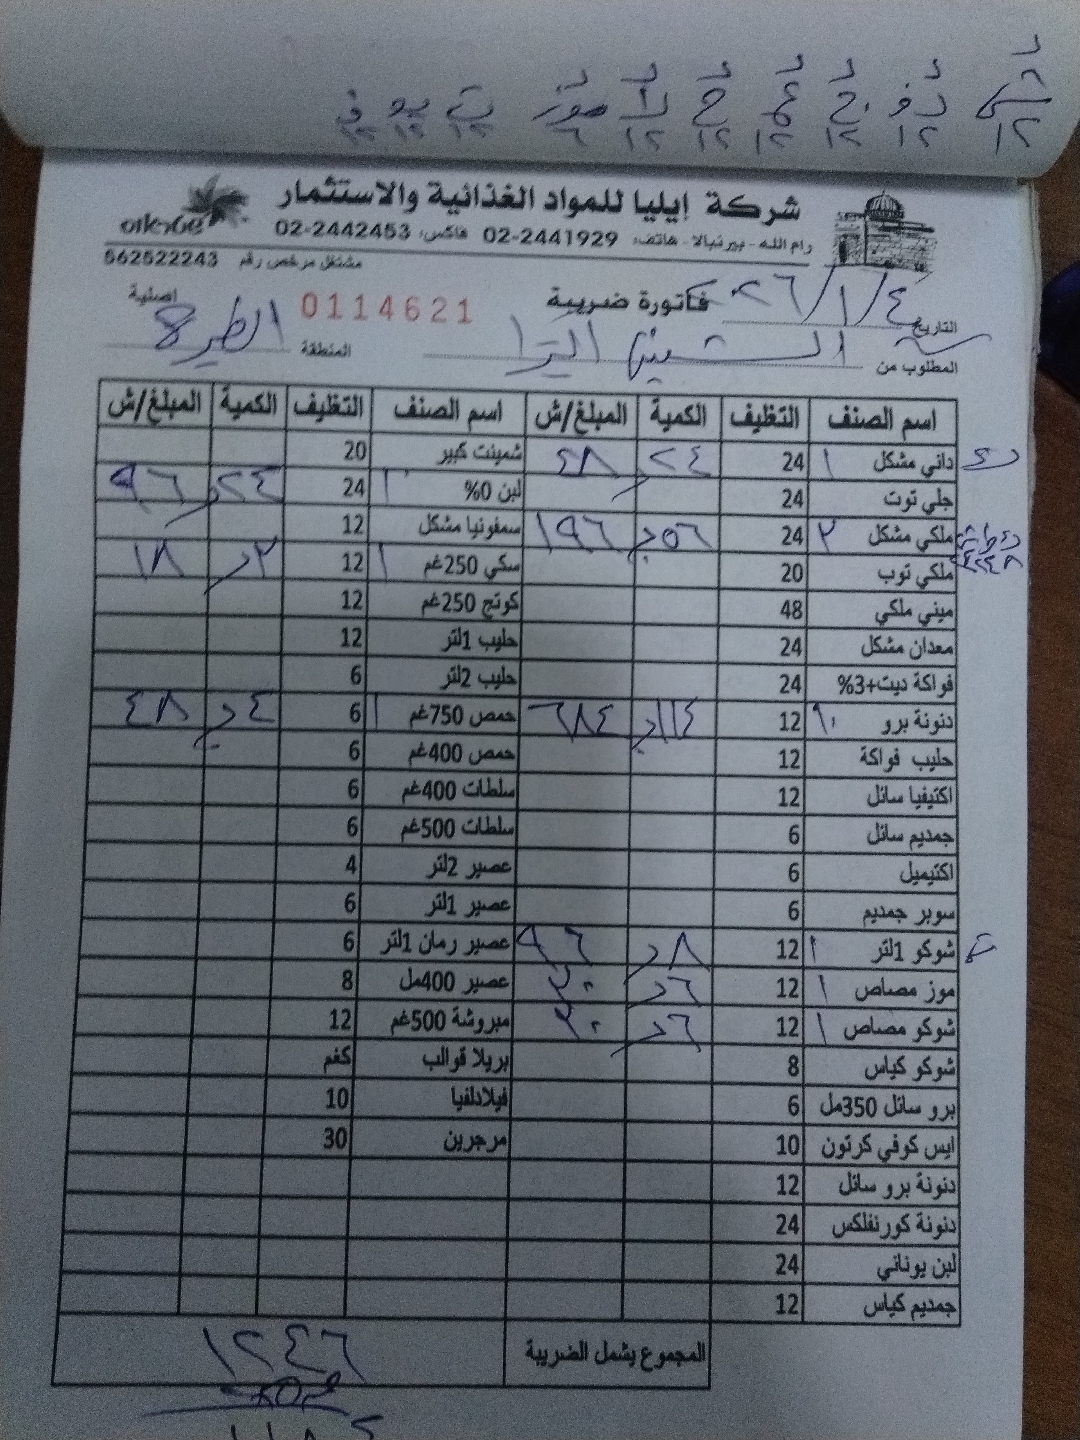 شركة إيليا للمواد الغذائية والاستثمار
رام الله - بيرنبالا - هاتف: 02-2441929 فاكس: 02-2442453
مشتغل مرخص رقم 562522243
التاريخ ٢٦/١/٤ فاتورة ضريبة 0114621 اصلية
المطلوب من المنطقة الطيرة
اسم الصنف التظيف الكمية المبلغ/ش اسم الصنف التظيف الكمية المبلغ/ش
داني مشكل ١ 24 ٢٤ ٤٨ شمينت كبير 20
جلي توت 24 لبن 0% ١ 24 ٢٤ ٩٦
ملكي مشكل ٢ 24 ٥٦ ١٩٦ سمفونيا مشكل 12
ملكي توب 20 سكي 250غم ١ 12 ٣ ١٨
ميني ملكي 48 كوتج 250غم 12
معدان مشكل 24 حليب 1لتر 12
فواكة ديت+3% 24 حليب 2لتر 6
دنونة برو 12 ١١٤ ٦٨٤ حمص 750غم ١ 6 ٤ ٤٨
حليب فواكة 12 حمص 400غم 6
اكتيفيا سائل 12 سلطات 400غم 6
جمديم سائل 6 سلطات 500غم 6
اكتيميل 6 عصير 2لتر 4
سوبر جمديم 6 عصير 1لتر 6
شوكو 1لتر ١ 12 ٨ ٩٦ عصير رمان 1لتر 6
موز مصاص ١ 12 ٦ ٣٠ عصير 400مل 8
شوكو مصاص ١ 12 ٦ ٣٠ مبروشة 500غم 12
شوكو كياس 8 بريلا قوالب كغم
برو سائل 350مل 6 فيلادلفيا 10
ايس كوفي كرتون 10 مرجرين 30
دنونة برو سائل 12
دنونة كورنفلكس 24
لبن يوناني 24
جمديم كياس 12
المجموع يشمل الضريبة ١٢٤٦